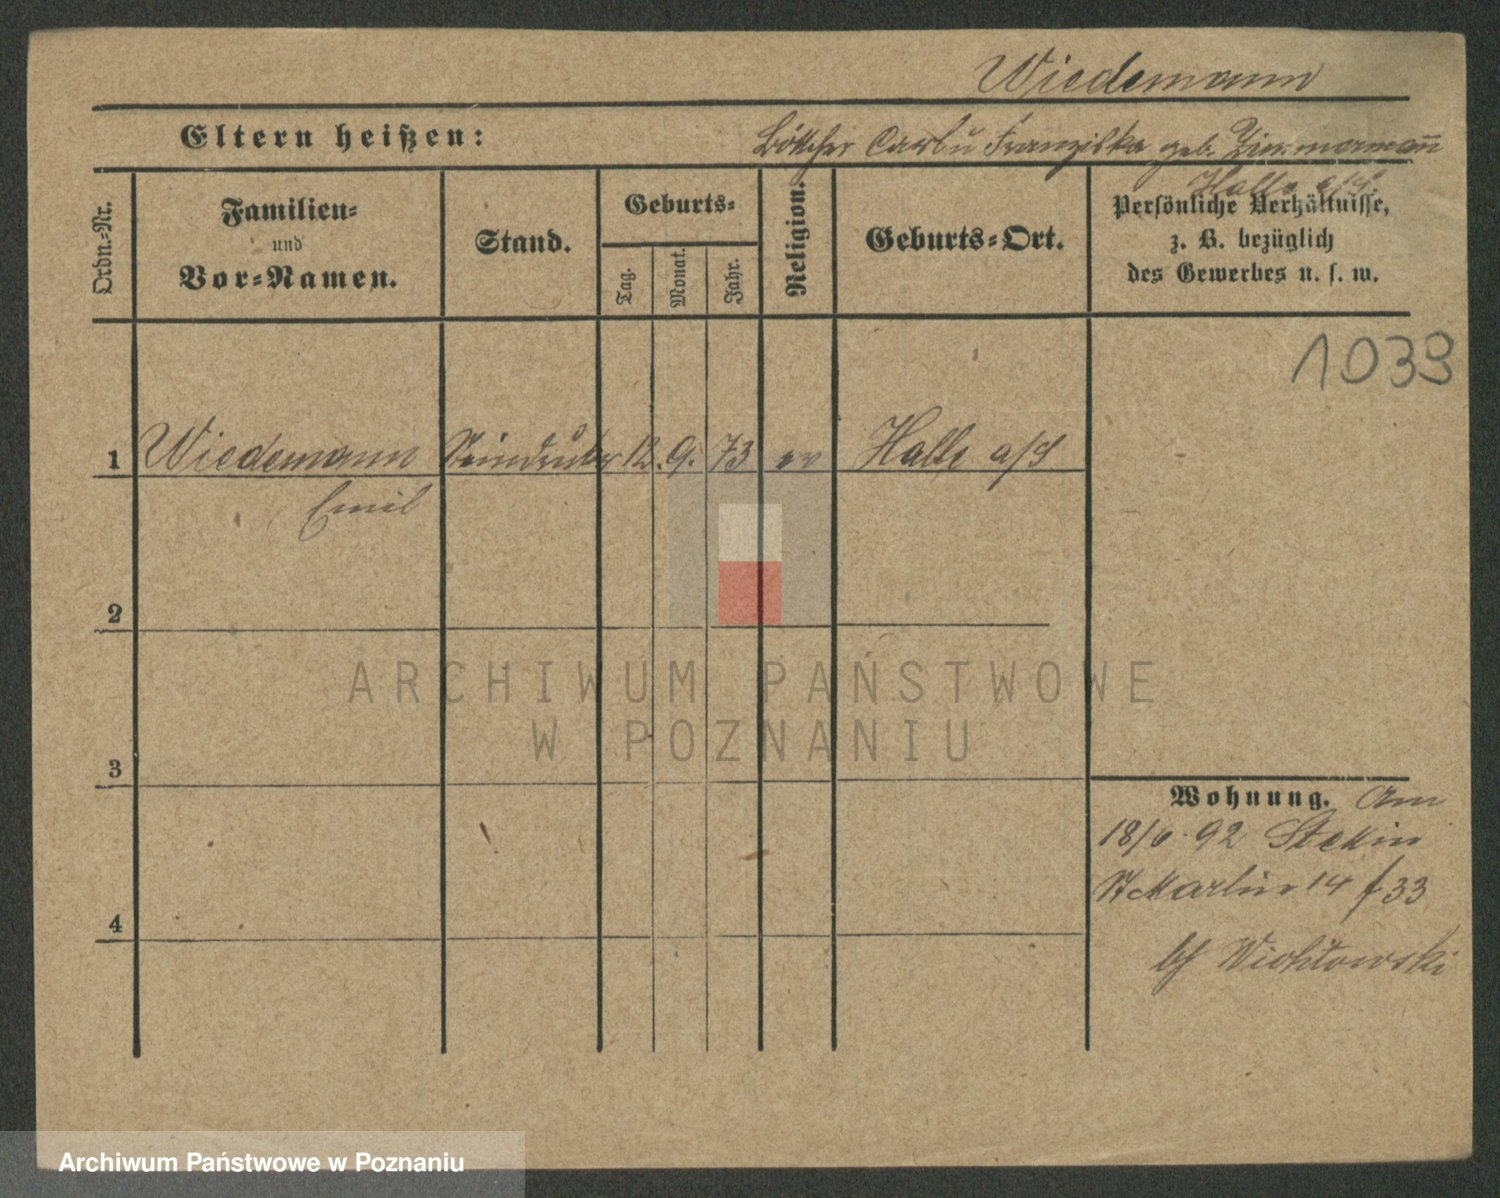 Wiedemann
Eltern heißen: Böttcher Carl u Franziska geb. Zimmermann
Halle a/S
Ordn.-Nr.
Familien-
und
Vor-Namen.
Stand.
Geburts-
Tag.
Monat.
Jahr.
Religion.
Geburts-Ort.
Persönliche Verhältnisse,
z. B. bezüglich
des Gewerbes u. s. w.
1039
1 Wiedemann 12. 9. 73 ev Halle a/S
Emil
2
3
4
Wohnung. Am
18/6 92 Stettin
St Martin 14 f 33
b/ Wichtowski
ARCHIWUM PAŃSTWOWE
W POZNANIU
Archiwum Państwowe w Poznaniu